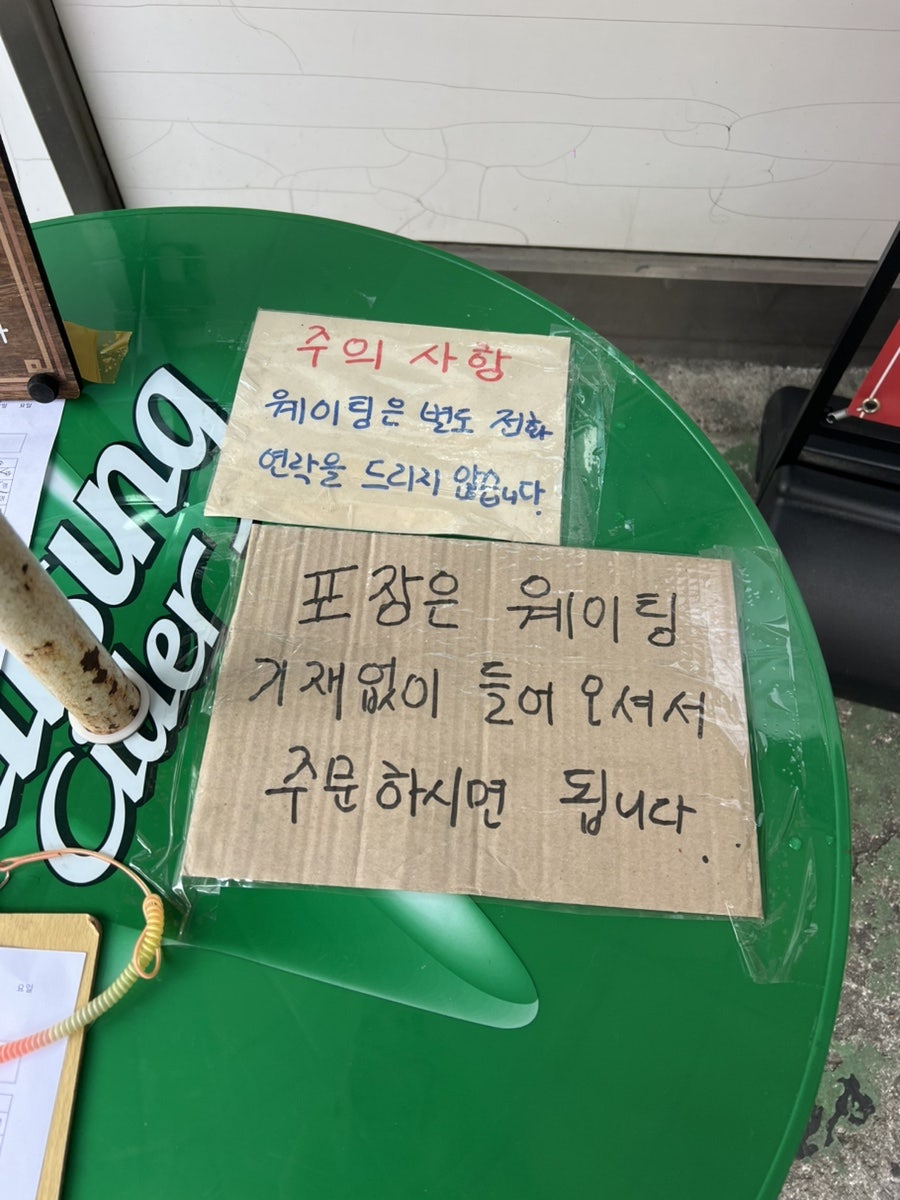 주의 사항
웨이팅은 별도 전화
연락을 드리지 않습니다.
포장은 웨이팅
기재없이 들어오셔서
주문하시면 됩니다.
Cider
요일
요일